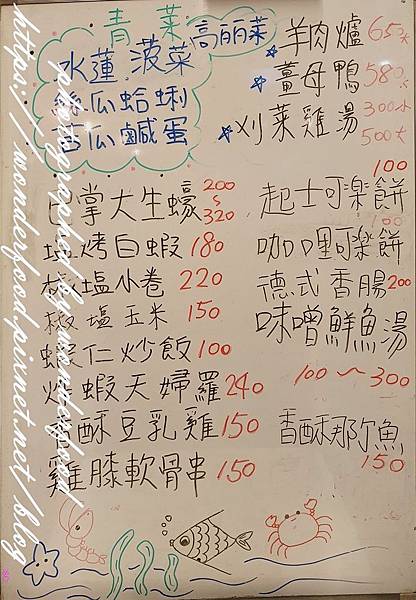 青菜
高丽菜
水蓮 菠菜
絲瓜蛤蜊
苦瓜鹹蛋
羊肉爐 650大
薑母鴨 580
刈菜雞湯 300小
500大
巴掌大生蠔 200~320
塩烤白蝦 180
椒塩小卷 220
椒塩玉米 150
蝦仁炒飯 100
炸蝦天婦羅 240
香酥豆乳雞 150
雞膝軟骨串 150
起士可樂餅 100
咖哩可樂餅 100
德式香腸 200
味噌鮮魚湯
100~300
香酥那尔魚
150
https://wonderfood.pixnet.net/blog